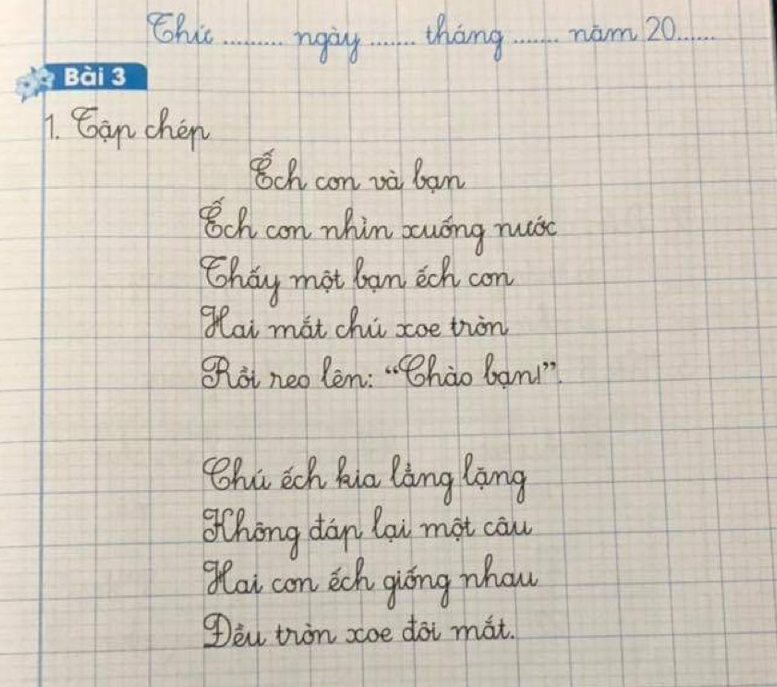 Thứ ......... ngày ....... tháng ....... năm 20......
Bài 3
1. Tập chép
Ếch con và bạn
Ếch con nhìn xuống nước
Thấy một bạn ếch con
Hai mắt chú xoe tròn
Rồi reo lên: “Chào bạn!”.
Chú ếch kia lẳng lặng
Không đáp lại một câu
Hai con ếch giống nhau
Đều tròn xoe đôi mắt.